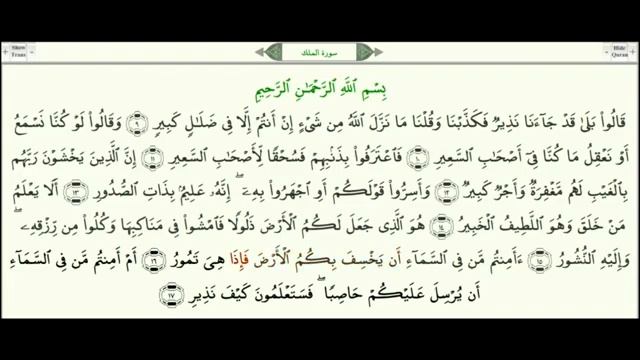 Show Trans
سورة الملك
Hide Quran
بِسْمِ ٱللَّهِ ٱلرَّحْمَـٰنِ ٱلرَّحِيمِ
قَالُوا۟ بَلَىٰ قَدْ جَآءَنَا نَذِيرٌ فَكَذَّبْنَا وَقُلْنَا مَا نَزَّلَ ٱللَّهُ مِن شَىْءٍ إِنْ أَنتُمْ إِلَّا فِى ضَلَـٰلٍ كَبِيرٍ ﴿٩﴾ وَقَالُوا۟ لَوْ كُنَّا نَسْمَعُ
أَوْ نَعْقِلُ مَا كُنَّا فِىٓ أَصْحَـٰبِ ٱلسَّعِيرِ ﴿١٠﴾ فَٱعْتَرَفُوا۟ بِذَنۢبِهِمْ فَسُحْقًا لِّأَصْحَـٰبِ ٱلسَّعِيرِ ﴿١١﴾ إِنَّ ٱلَّذِينَ يَخْشَوْنَ رَبَّهُم
بِٱلْغَيْبِ لَهُم مَّغْفِرَةٌ وَأَجْرٌ كَبِيرٌ ﴿١٢﴾ وَأَسِرُّوا۟ قَوْلَكُمْ أَوِ ٱجْهَرُوا۟ بِهِۦٓ ۖ إِنَّهُۥ عَلِيمٌۢ بِذَاتِ ٱلصُّدُورِ ﴿١٣﴾ أَلَا يَعْلَمُ
مَنْ خَلَقَ وَهُوَ ٱللَّطِيفُ ٱلْخَبِيرُ ﴿١٤﴾ هُوَ ٱلَّذِى جَعَلَ لَكُمُ ٱلْأَرْضَ ذَلُولًا فَٱمْشُوا۟ فِى مَنَاكِبِهَا وَكُلُوا۟ مِن رِّزْقِهِۦ ۖ
وَإِلَيْهِ ٱلنُّشُورُ ﴿١٥﴾ ءَأَمِنتُم مَّن فِى ٱلسَّمَآءِ أَن يَخْسِفَ بِكُمُ ٱلْأَرْضَ فَإِذَا هِىَ تَمُورُ ﴿١٦﴾ أَمْ أَمِنتُم مَّن فِى ٱلسَّمَآءِ
أَن يُرْسِلَ عَلَيْكُمْ حَاصِبًا ۖ فَسَتَعْلَمُونَ كَيْفَ نَذِيرِ ﴿١٧﴾